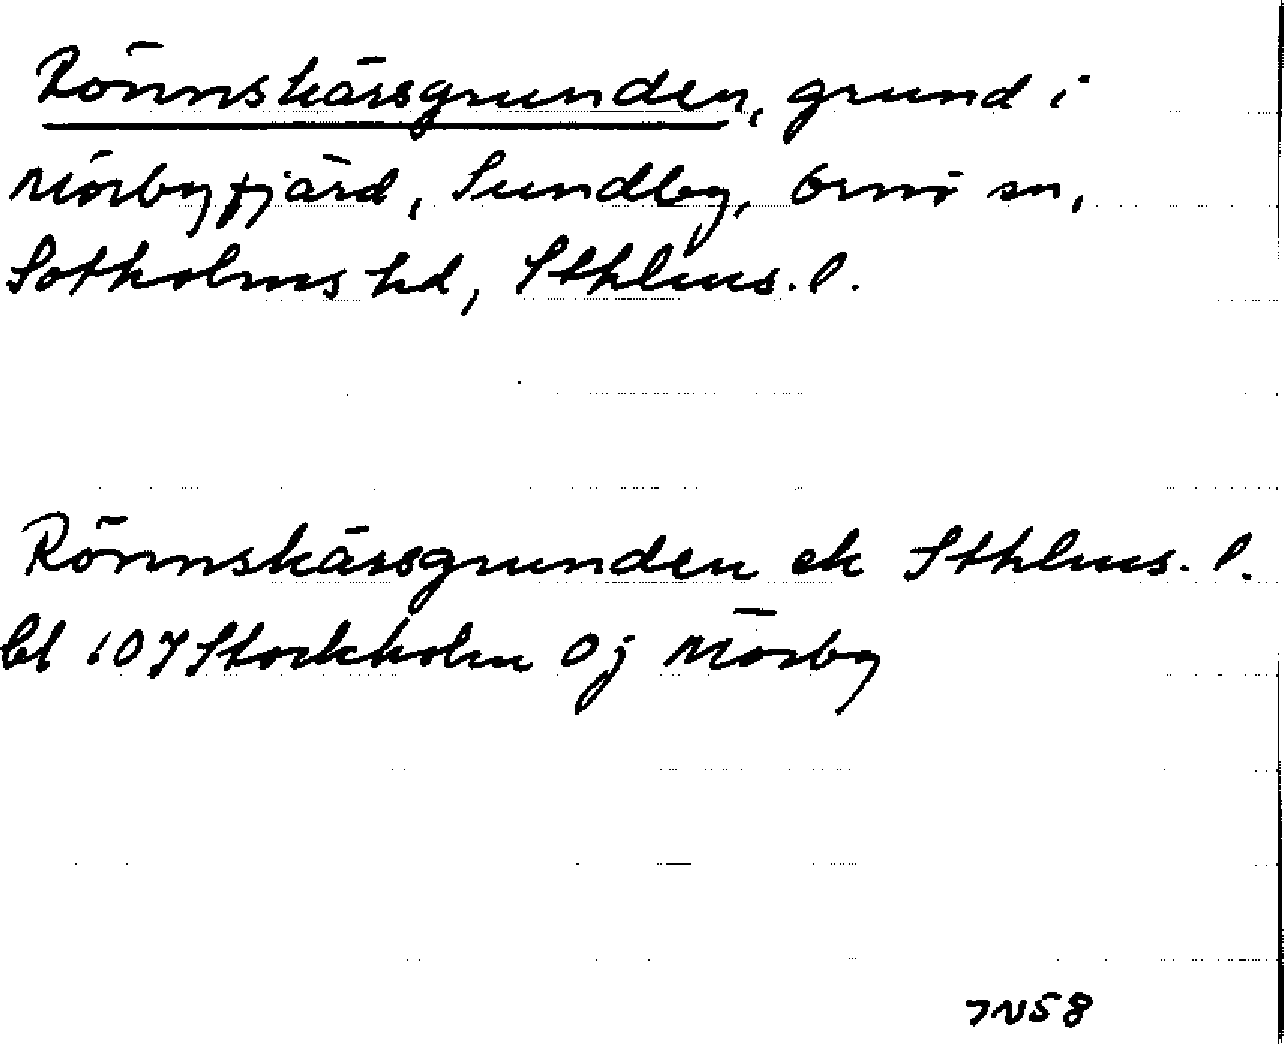 Rönnskärsgrunden, grund i
Mörbyfjärd, Sundby, Ornö sn,
Sotholms hd, Sthlms. l.
Rönnskärsgrunden ek Sthlms. l.
bl 107 Stockholm Oj Mörby